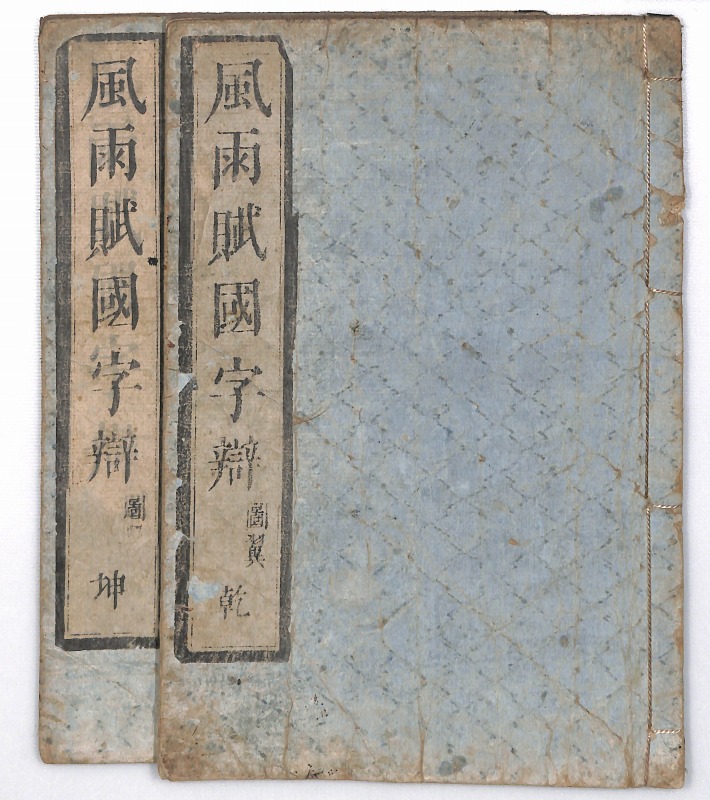 風雨賦國字辯
圖翼
乾
風雨賦國字辯
圖
坤